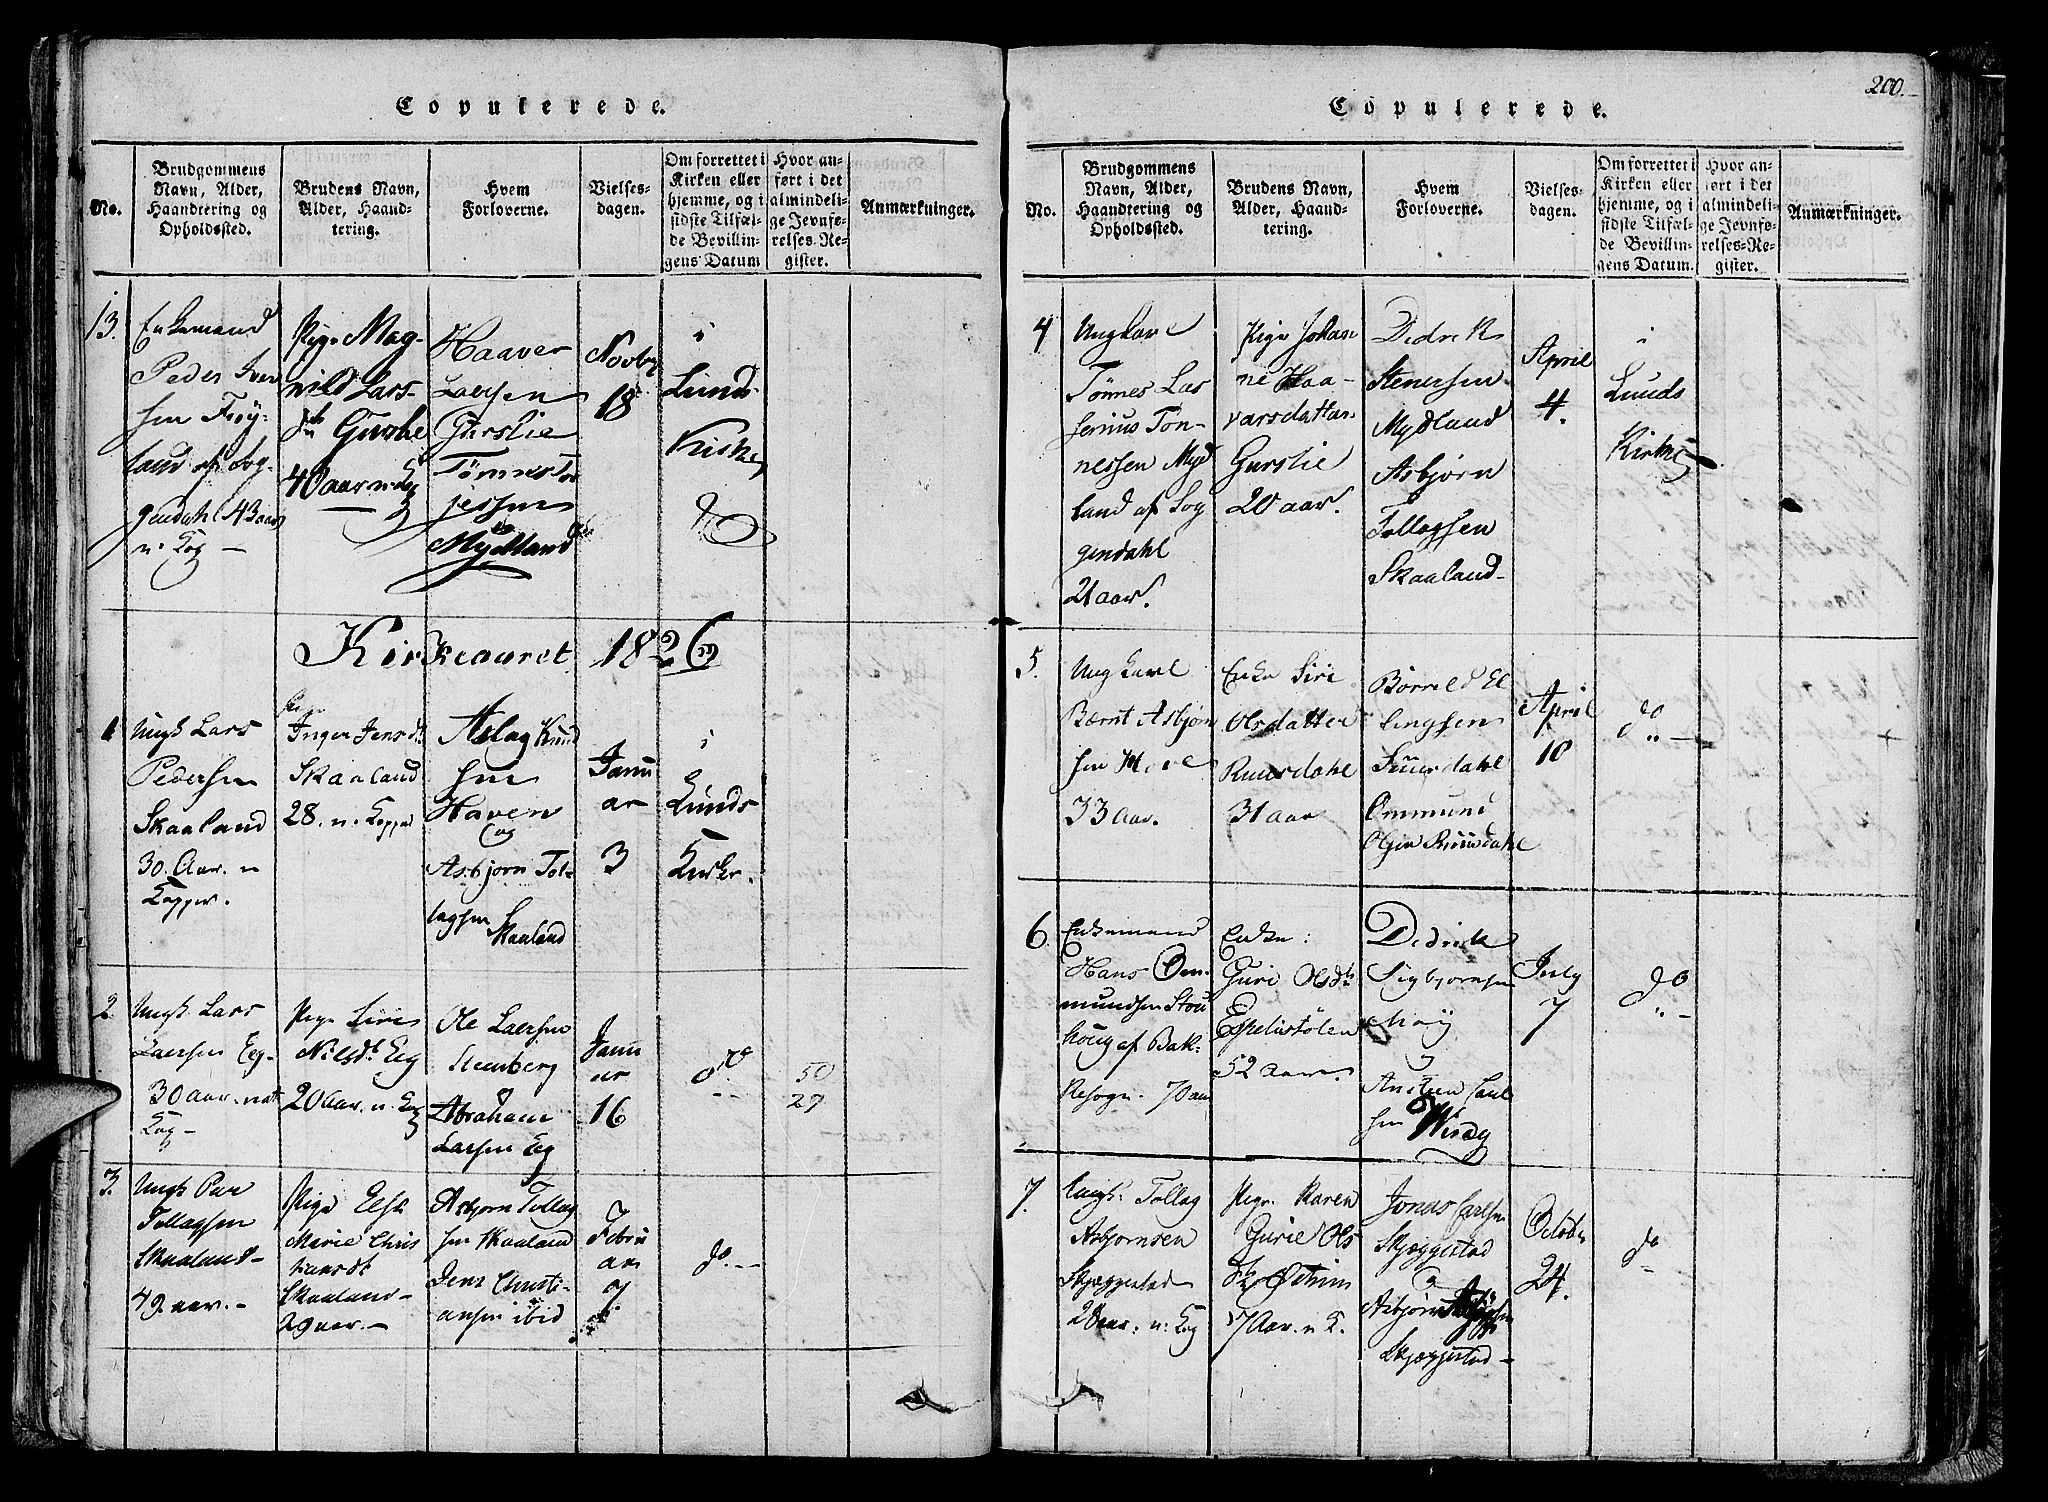 Copulerede.
No.
Brudgommens
Navn, Alder,
Haandtering og
Opholdssted.
Brudens Navn,
Alder, Haand-
tering.
Hvem
Forloverne.
Vielses-
dagen.
Om forrettet i
Kirken eller
hjemme, og i
sidste Tilfæl-
de Bevillin-
gens Datum
Hvor an-
ført i det
almindeli-
ge Jevnfø-
relses-Re-
gister.
Anmærkninger.
13.
Enkemand
Peder Iver
sen Frøy-
land af Sog-
gendahl 43 aar
n. Cop
Pige Mag-
nild Lars-
dtr Gurslie
40 aar
Haaver
Laersen
Gurslie
Tønnes To
jessen
Mydland
Novbr
18
i
Lunds
Kirke
Kirkeaaret 1826
1
Ungk Lars
Pedersen
Skaaland
30. Aar. n
Copper.
Pige
Inger Jensdt
Skaaland
28. n. Copper
Aslag Knud
sen
Haven
og
Asbjørn Tol-
lagsen
Skaaland
Janu
ar
3
i
Lunds
Kirke.
2.
Ungk. Lars
Laersen Eeg-
30 aar. nat
Cop-
Pige Siri
Nilsdt. Eeg
20 Aar. n. Cop
Ole Laersen
Steenberg
Abraham
Larsen Eeg
Janu
ar
16
do
50
27
3.
Ungk. Peer
Tollagsen
Skaaland-
49 aar.-
Pige Else
Marie Chris
tiansdt
Skaaland-
29 aar.-
Asbjørn Tollag
sen Skaaland
Jens Christi-
ansen ibid
Febru
ar
7
do
200.
Copulerede.
No.
Brudgommens
Navn, Alder,
Haandtering og
Opholdssted.
Brudens Navn,
Alder, Haand-
tering.
Hvem
Forloverne.
Vielses-
dagen.
Om forrettet i
Kirken eller
hjemme, og i
sidste Tilfæl-
de Bevillin-
gens Datum.
Hvor an-
ført i det
almindeli-
ge Jevnfø-
relses-Re-
gister.
Anmærkninger.
4
Ungkarl
Tønnes Las
serius Tøn-
nessen Myd
land af Sog
gendahl
21 aar.
Pige Johan
ne Haa-
varsdatter
Gurslie
20 aar.
Didrik
Stenersen
Mydland
Asbjørn
Tollagsen
Skaaland-
April
4.
i
Lunds
Kirke
5.
Ungkarl
Bernt Asbjørn
sen Hove
33 Aar.
Enke Siri
Olsdatter
Ruusdahl
31 aar
Børrild El
lingsen
Ommund
Olsen
April
10
do
6
Enkemand
Hans Om-
mundsen
af Bak-
ke sogn. 70 aar
Enke:
Guri Olsdtr
Espelistølen
52 aar.
Didrick
Sigbjørnsen
Moÿ
Carl
sen
July
7
do
7.
Ungk. Tollag
Asbjørnsen
Skjæggestad
28 aar. n. Cop
Pige Karen
Gurie Ols
dtr
Aar. n C.
Jonas Carlsen
Skjæggestad
Asbjørn
Skjæggestad-
October
24.
do